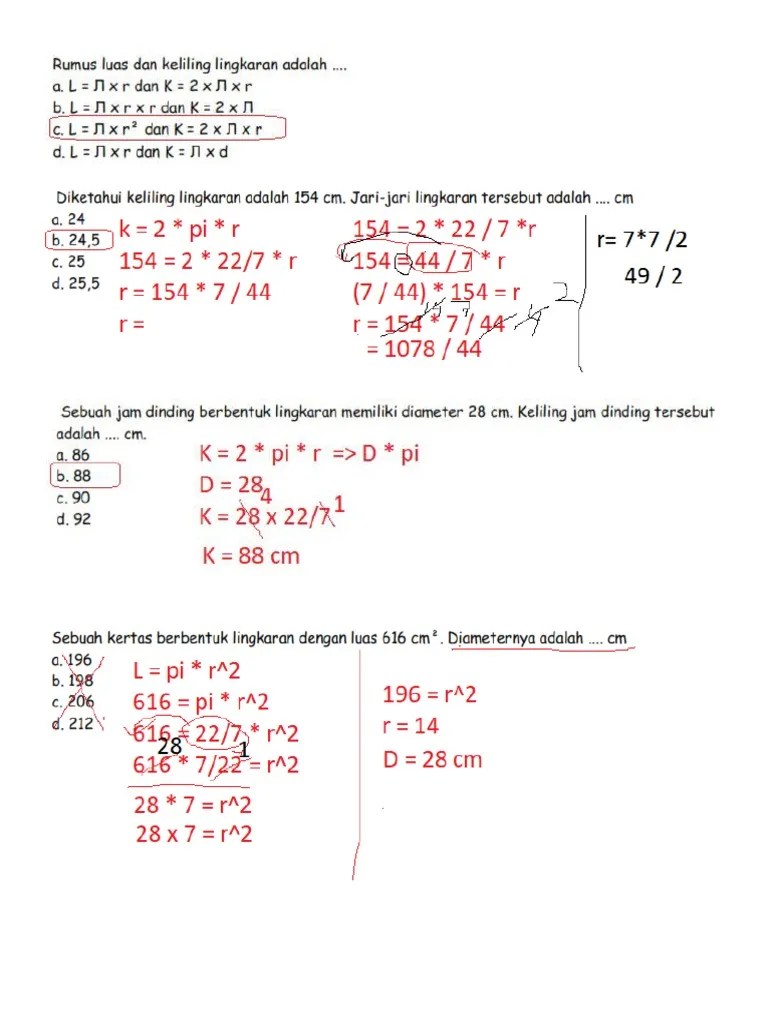 Rumus luas dan keliling lingkaran adalah ....
a. L = Л x r dan K = 2 x Л x r
b. L = Л x r x r dan K = 2 x Л
c. L = Л x r² dan K = 2 x Л x r
d. L = Л x r dan K = Л x d
Diketahui keliling lingkaran adalah 154 cm. Jari-jari lingkaran tersebut adalah .... cm
a. 24
b. 24,5
c. 25
d. 25,5
k = 2 * pi * r
154 = 2 * 22/7 * r
r = 154 * 7 / 44
r =
154 = 2 * 22 / 7 *r
154 = 44 / 7 * r
(7 / 44) * 154 = r
r = 154 * 7 / 44
= 1078 / 44
2
7
r= 7*7 /2
49 / 2
Sebuah jam dinding berbentuk lingkaran memiliki diameter 28 cm. Keliling jam dinding tersebut
adalah .... cm.
a. 86
b. 88
c. 90
d. 92
K = 2 * pi * r => D * pi
D = 28
4
1
K = 28 x 22/7
K = 88 cm
Sebuah kertas berbentuk lingkaran dengan luas 616 cm². Diameternya adalah .... cm
a. 196
b. 198
c. 206
d. 212
L = pi * r^2
616 = pi * r^2
616 = 22/7 * r^2
28
1
616 * 7/22 = r^2
28 * 7 = r^2
28 x 7 = r^2
196 = r^2
r = 14
D = 28 cm